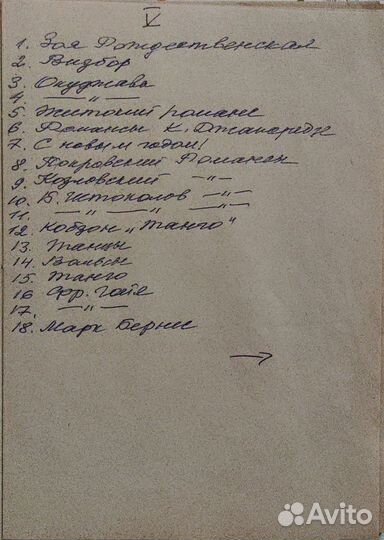 V
1. Зоя Рождественская
2. Визбор
3. Окуджава
4. — " —
5. Жестокий романс
6. Романсы К. Джапаридзе
7. С новым годом!
8. Покровский Романсы
9. Козловский — " —
10. Б. Штоколов — " —
11. — " — " — " —
12. Кобзон „Танго"
13. Танцы
14. Вальсы
15. Танго
16 Фр. Гойя
17. — " —
18. Марк Бернес
→
Avito